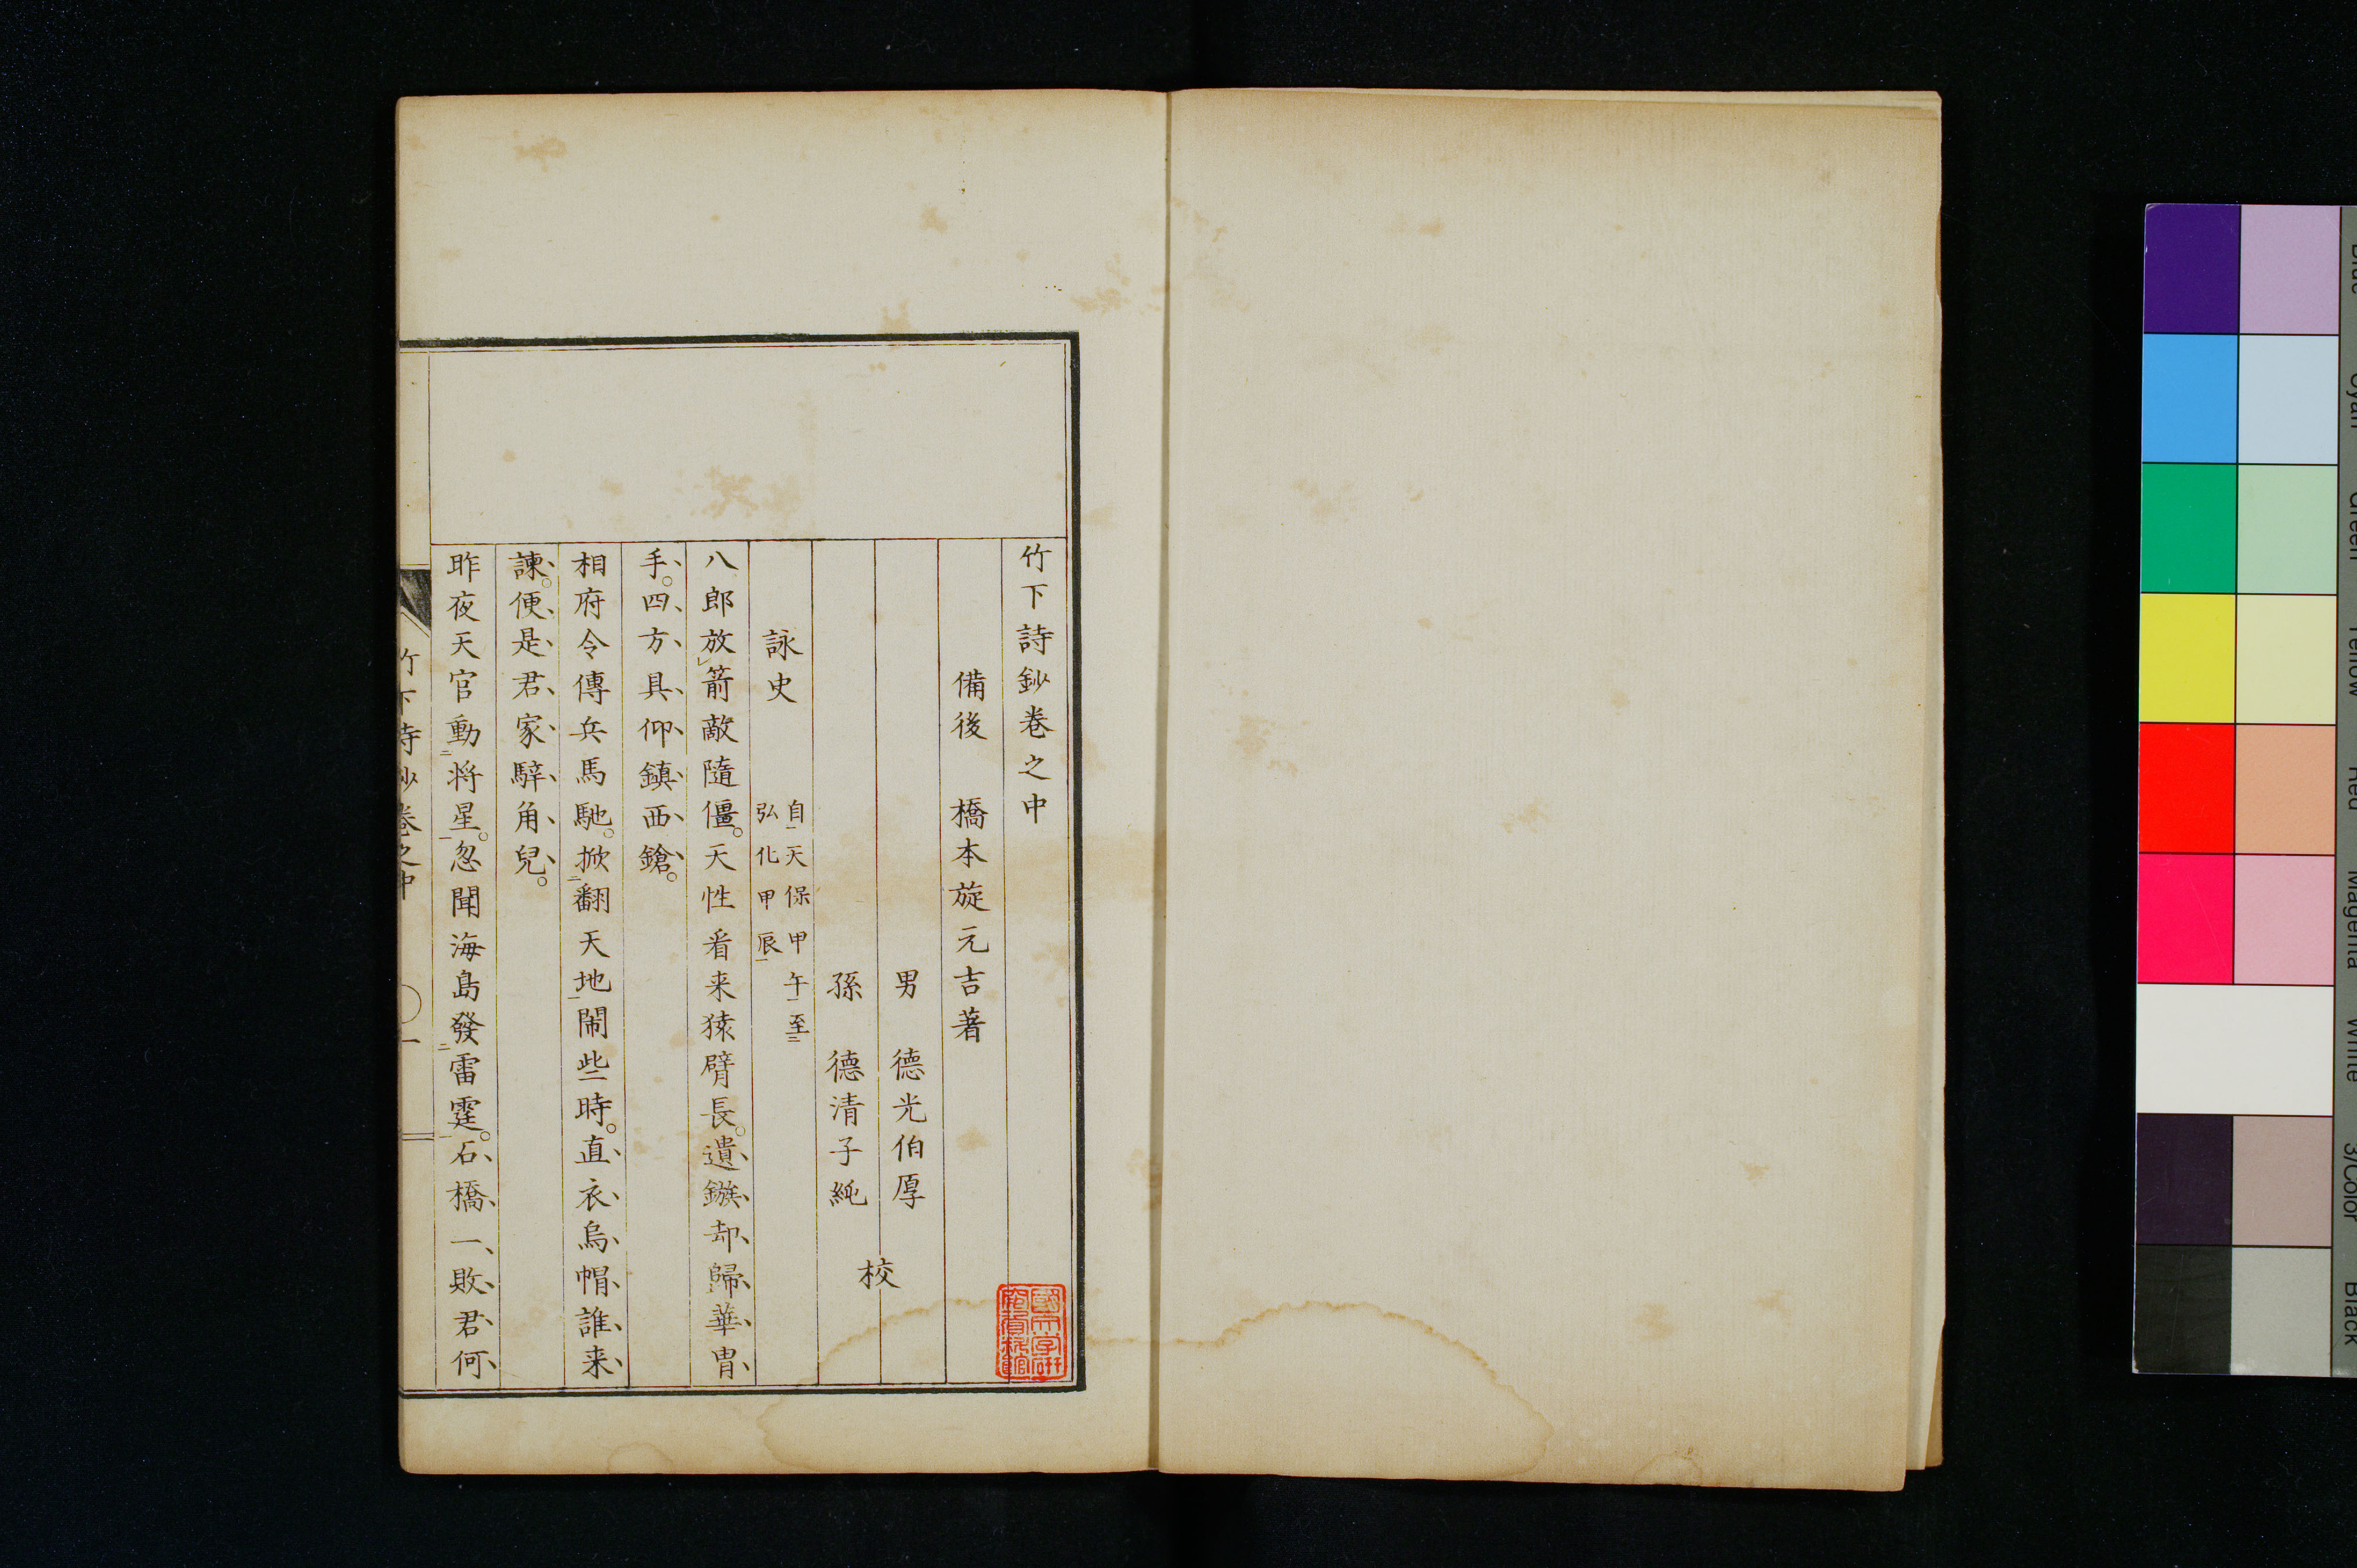 竹下詩鈔卷之中
備後　橋本旋元吉著
男　德光伯厚
孫　德清子純
校
詠史　自天保甲午至
弘化甲辰
八郎放箭敵隨僵。天性看来猿臂長。遺鏃却歸華胄
手。四方具仰鎮西鎗。
相府令傳兵馬馳。掀翻天地鬧些時。直衣烏帽誰来
諫。便是君家騂角兒。
昨夜天官動将星。忽聞海島發雷霆。石橋一敗君何
竹下詩鈔卷之中　一
Cyan
Green
Yellow
Red
Magenta
White
3/Color
Black